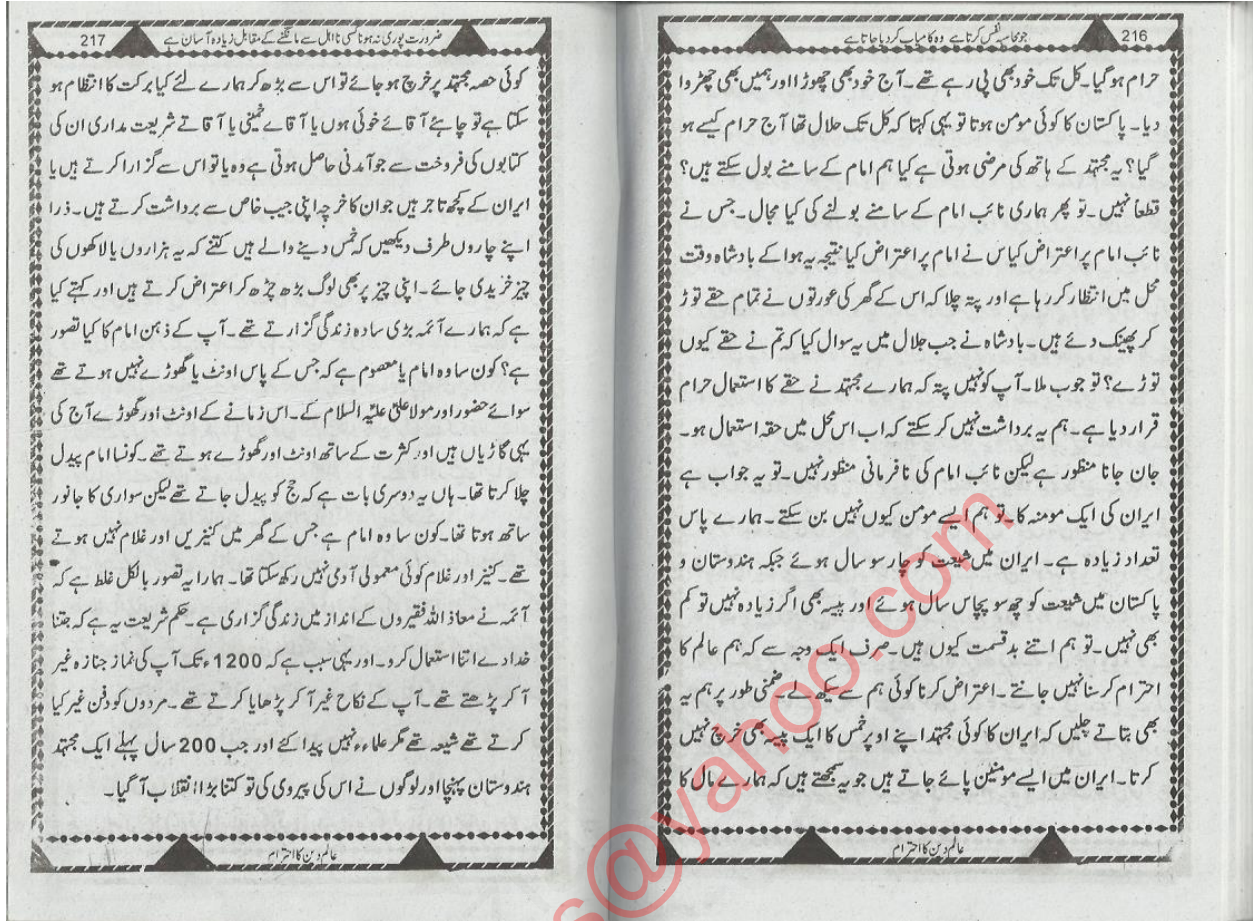 216
جو محاسبہ نفس کرتا ہے وہ کامیاب کر دیا جاتا ہے
حرام ہو گیا۔ کل تک خود بھی پی رہے تھے۔ آج خود بھی چھوڑا اور ہمیں بھی چھڑوا
دیا۔ پاکستان کا کوئی مومن ہوتا تو یہی کہتا کہ کل تک حلال تھا آج حرام کیسے ہو
گیا؟ یہ مجتہد کے ہاتھ کی مرضی ہوتی ہے کیا ہم امام کے سامنے بول سکتے ہیں؟
قطعاً نہیں۔ تو پھر ہماری نائب امام کے سامنے بولنے کی کیا مجال۔ جس نے
نائب امام پر اعتراض کیا س نے امام پر اعتراض کیا نتیجہ یہ ہوا کے بادشاہ وقت
محل میں انتظار کر رہا ہے اور پتہ چلا کہ اس کے گھر کی عورتوں نے تمام حقے توڑ
کر پھینک دئے ہیں۔ بادشاہ نے جب جلال میں یہ سوال کیا کہ تم نے حقے کیوں
توڑے؟ تو جوب ملا۔ آپ کو نہیں پتہ کہ ہمارے مجتہد نے حقے کا استعمال حرام
قرار دیا ہے۔ ہم یہ برداشت نہیں کر سکتے کہ اب اس محل میں حقہ استعمال ہو۔
جان جانا منظور ہے لیکن نائب امام کی نافرمانی منظور نہیں۔ تو یہ جواب ہے
ایران کی ایک مومنہ کا۔ تو ہم ایسے مومن کیوں نہیں بن سکتے۔ ہمارے پاس
تعداد زیادہ ہے۔ ایران میں شیعت کو چار سو سال ہوئے جبکہ ہندوستان و
پاکستان میں شیعت کو چھ سو پچاس سال ہوئے اور پیسہ بھی اگر زیادہ نہیں تو کم
بھی نہیں۔ تو ہم اتنے بدقسمت کیوں ہیں۔ صرف ایک وجہ سے کہ ہم عالم کا
احترام کرسنا نہیں جانتے۔ اعتراض کرنا کوئی ہم سے سیکھ لے۔ ضمنی طور پر ہم یہ
بھی بتاتے چلیں کہ ایران کا کوئی مجتہد اپنے اوپر خمس کا ایک پیسہ بھی خرچ نہیں
کرتا۔ ایران میں ایسے مومنین پائے جاتے ہیں جو یہ سمجھتے ہیں کہ ہمارے مال کا
عالم دین کا احترام
217
ضرورت پوری نہ ہونا کسی نا اہل سے مانگنے کے مقابل زیادہ آسان ہے
کوئی حصہ مجتہد پر خرچ ہو جائے تو اس سے بڑھ کر ہمارے لئے کیا برکت کا انتظام ہو
سکتا ہے تو چاہئے آقائے خوئی ہوں یا آقاے خمینی یا آقائے شریعت مداری ان کی
کتابوں کی فروخت سے جو آمدنی حاصل ہوتی ہے وہ یا تو اس سے گزارا کرتے ہیں یا
ایران کے کچھ تاجر ہیں جو ان کا خرچہ اپنی جیب خاص سے برداشت کرتے ہیں۔ ذرا
اپنے چاروں طرف دیکھیں کہ خمس دینے والے ہیں کتنے کہ یہ ہزاروں یا لاکھوں کی
چیز خریدی جائے۔ اپنی چیز پر بھی لوگ بڑھ چڑھ کر اعتراض کرتے ہیں اور کہتے کیا
ہے کہ ہمارے آئمہ بڑی سادہ زندگی گزارتے تھے۔ آپ کے ذہن امام کا کیا تصور
ہے؟ کون سا وہ امام یا معصوم ہے کہ جس کے پاس اونٹ یا گھوڑے نہیں ہوتے تھے
سوائے حضور اور مولا علی علیہ السلام کے۔ اس زمانے کے اونٹ اور گھوڑے آج کی
یہی گاڑیاں ہیں اور کثرت کے ساتھ اونٹ اور گھوڑے ہوتے تھے۔ کونسا امام پیدل
چلا کرتا تھا۔ ہاں یہ دوسری بات ہے کہ حج کو پیدل جاتے تھے لیکن سواری کا جانور
ساتھ ہوتا تھا۔ کون سا وہ امام ہے جس کے گھر میں کنیزیں اور غلام نہیں ہوتے
تھے۔ کنیز اور غلام کوئی معمولی آدمی نہیں رکھ سکتا تھا۔ ہمارا یہ تصور بالکل غلط ہے کہ
آئمہ نے معاذ اللہ فقیروں کے انداز میں زندگی گزاری ہے۔ حکم شریعت یہ ہے کہ جتنا
خدا دے اتنا استعمال کرو۔ اور یہی سبب ہے کہ 1200ء تک آپ کی نماز جنازہ غیر
آ کر پڑھتے تھے۔ آپ کے نکاح غیر آ کر پڑھایا کرتے تھے۔ مردوں کو دفن غیر کیا
کرتے تھے شیعہ تھے مگر علماء نہیں پیدا کئے اور جب 200 سال پہلے ایک مجتہد
ہندوستان پہنچا اور لوگوں نے اس کی پیروی کی تو کتنا بڑا انقلاب آ گیا۔
عالم دین کا احترام
s@yahoo.com